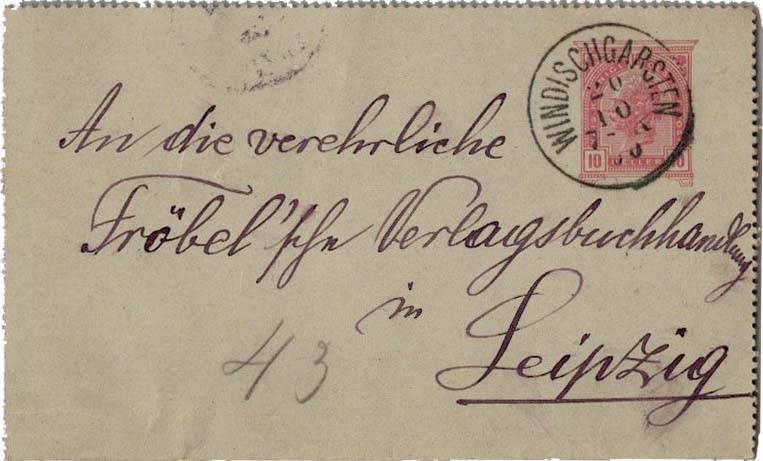 WINDISCHGARSTEN
20
10
10 HELLER 10
An die verehrliche
Fröbel'sche Verlagsbuchhandlung
in
Leipzig
43